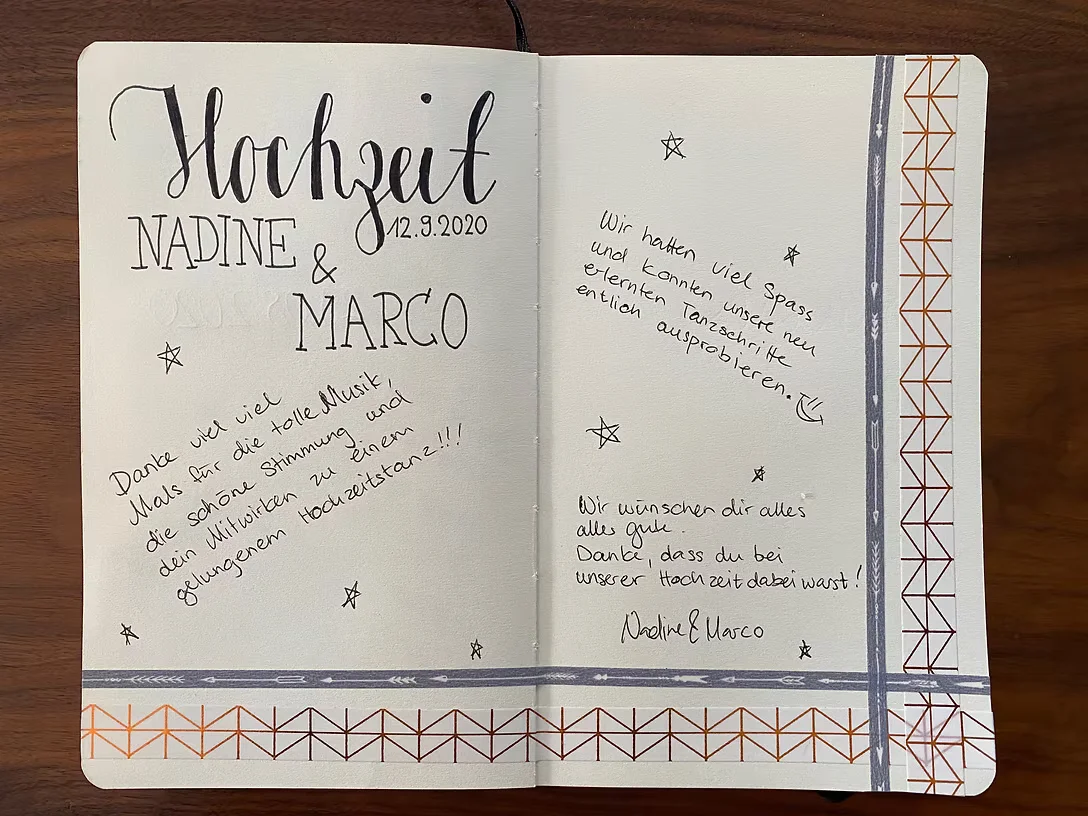 Hochzeit
12.9.2020
NADINE
&
MARCO
Danke viel viel
Mals für die tolle Musik,
die schöne Stimmung und
dein Mitwirken zu einem
gelungenem Hochzeitstanz!!!
Wir hatten viel Spass
und konnten unsere neu
erlernten Tanzschritte
entlich ausprobieren.
Wir wünschen dir alles
alles gute.
Danke, dass du bei
unserer Hochzeit dabei warst!
Nadine & Marco